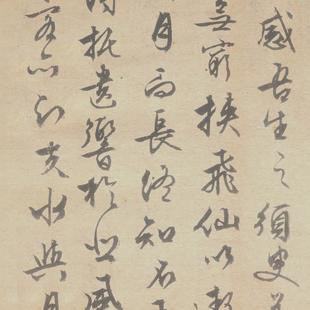 感吾生之須臾羨
無窮挾飛仙以遨
月而長終知不
得托遺響於悲風
客亦知夫水與月